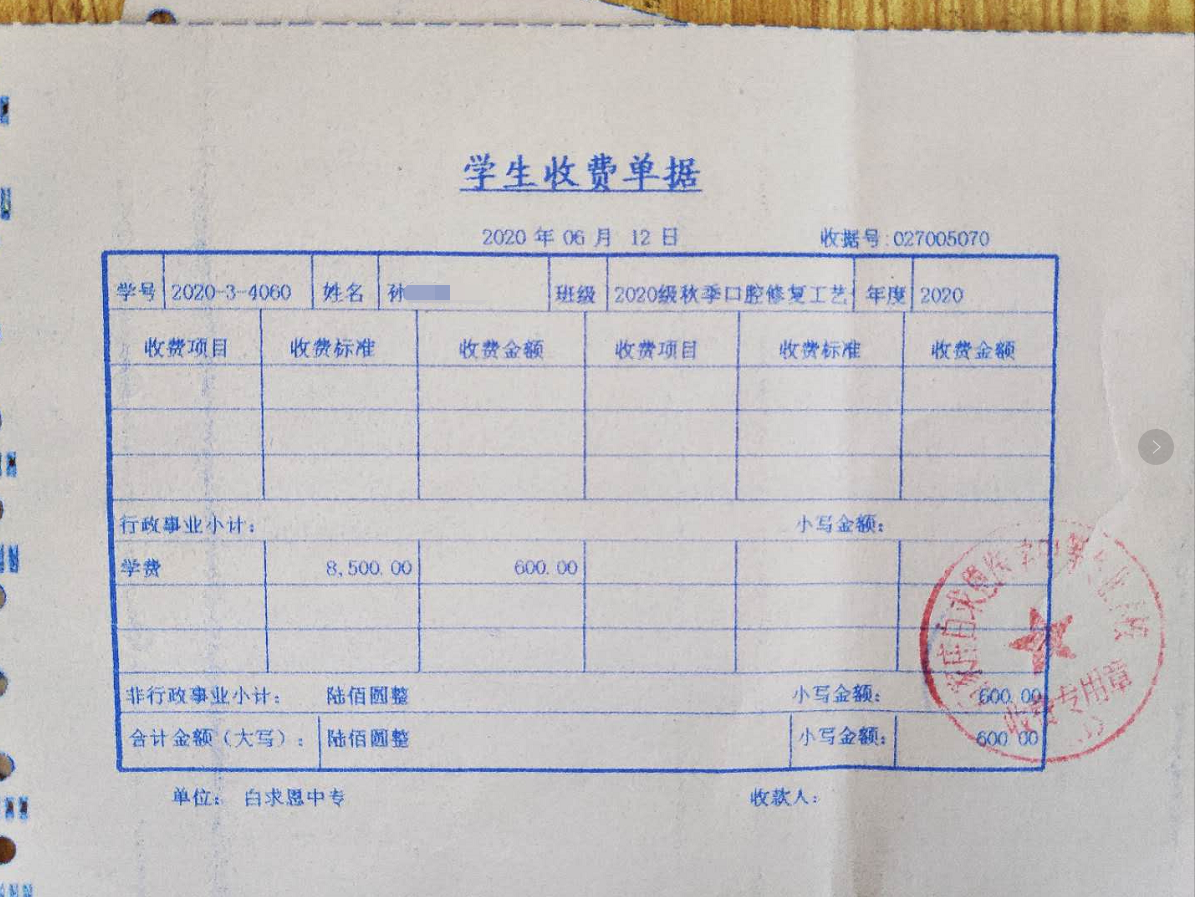 学生收费单据
2020 年 06 月 12 日 收据号:027005070
学号 2020-3-4060 姓名 孙 班级 2020级秋季口腔修复工艺 年度 2020
收费项目 收费标准 收费金额 收费项目 收费标准 收费金额
行政事业小计: 小写金额:
学费 8,500.00 600.00
非行政事业小计: 陆佰圆整 小写金额: 600.00
合计金额(大写): 陆佰圆整 小写金额: 600.00
单位: 白求恩中专 收款人:
白求恩医学中等专业学校
收费专用章